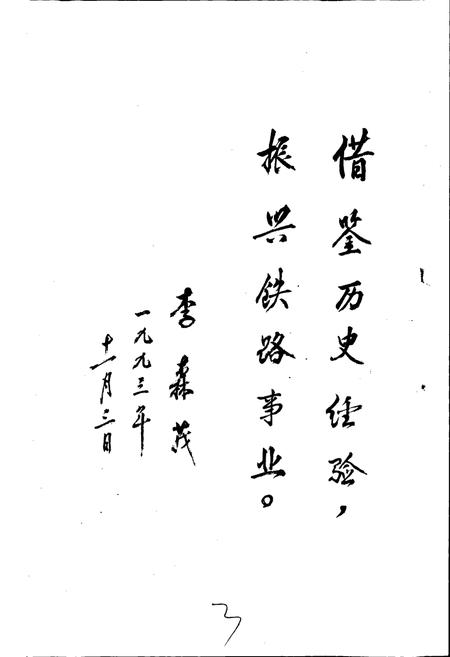 借鉴历史经验，
振兴铁路事业。
李森茂
一九九三年
十一月三日
3